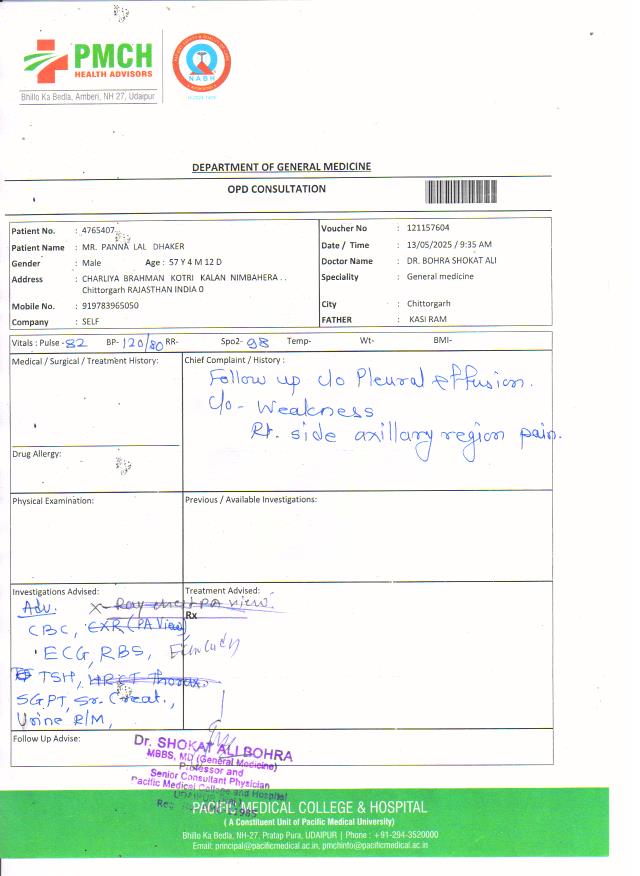 PMCH
HEALTH ADVISORS
Bhillo Ka Bedla, Amberi, NH 27, Udaipur
NABH
DEPARTMENT OF GENERAL MEDICINE
OPD CONSULTATION
Patient No. : 4765407
Patient Name : MR. PANNA LAL DHAKER
Gender : Male Age : 57 Y 4 M 12 D
Address : CHARLIYA BRAHMAN KOTRI KALAN NIMBAHERA . .
Chittorgarh RAJASTHAN INDIA 0
Mobile No. : 919783965050
Company : SELF
Voucher No : 121157604
Date / Time : 13/05/2025 / 9:35 AM
Doctor Name : DR. BOHRA SHOKAT ALI
Speciality : General medicine
City : Chittorgarh
FATHER : KASI RAM
Vitals : Pulse - 82 BP- 120/80 RR- Spo2- 98 Temp- Wt- BMI-
Medical / Surgical / Treatment History:
Chief Complaint / History :
Follow up c/o Pleural effusion.
c/o - Weakness
Rt. side axillary region pain.
Drug Allergy:
Physical Examination:
Previous / Available Investigations:
Investigations Advised:
Adv. X-Ray chest PA view.
CBC, CXR (PA View)
ECG, RBS,
TSH, HRCT Thorax
SGPT, Sr. Creat.,
Urine R/M,
Treatment Advised:
Rx
Follow Up Advise:
Dr. SHOKAT ALI BOHRA
MBBS, MD (General Medicine)
Professor and
Senior Consultant Physician
Pacific Medical College and Hospital
PACIFIC MEDICAL COLLEGE & HOSPITAL
( A Constituent Unit of Pacific Medical University)
Bhillo Ka Bedla, NH-27, Pratap Pura, UDAIPUR | Phone : +91-294-3520000
Email: principal@pacificmedical.ac.in, pmchinfo@pacificmedical.ac.in